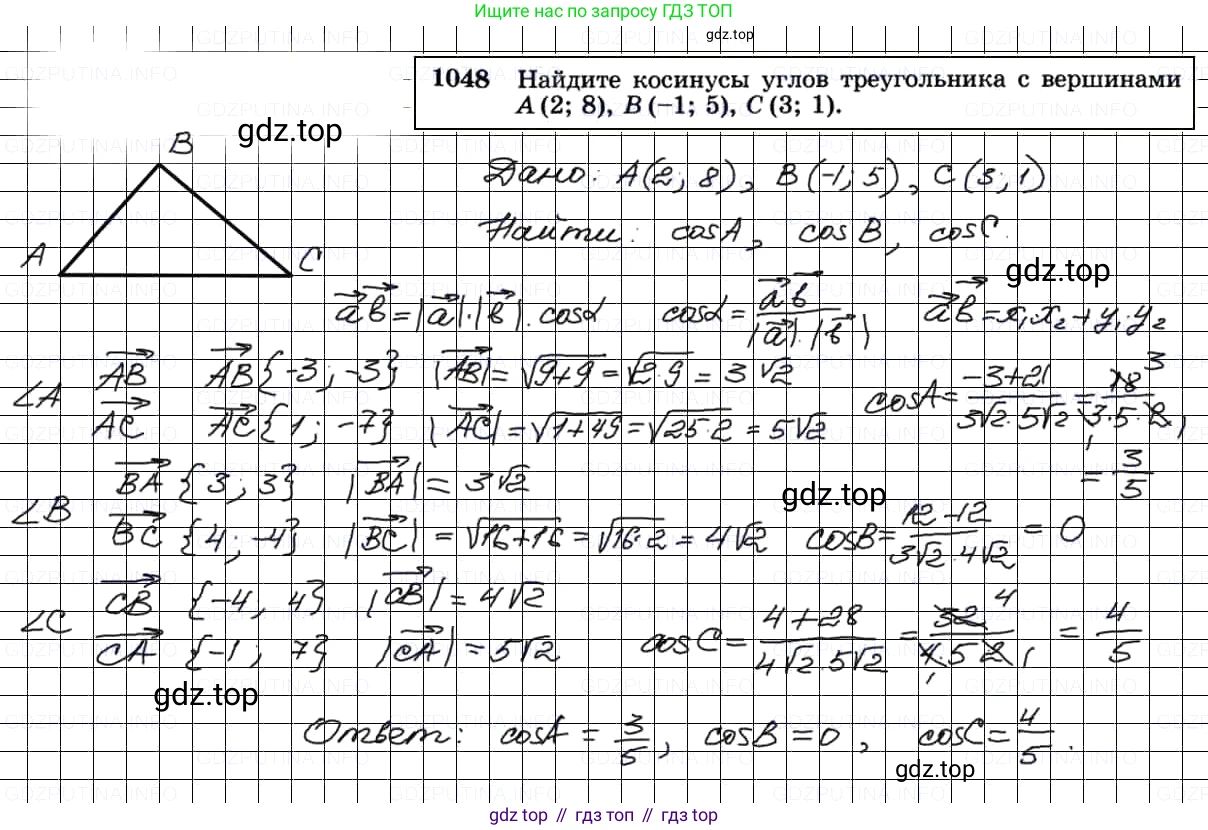 Ищите нас по запросу ГДЗ ТОП
gdz.top
1048 Найдите косинусы углов треугольника с вершинами
A (2; 8), B (−1; 5), C (3; 1).
gdz.top
B
A
C
Дано: A(2; 8), B(-1; 5), C(3; 1)
Найти: cosA, cosB, cosC.
gdz.top
ab = |a|·|b|·cosα cosα = ab / |a|·|b| ab = x₁·x₂ + y₁·y₂
∠A AB AB{-3; -3} |AB| = √9+9 = √2·9 = 3√2
AC AC{1; -7} |AC| = √1+49 = √25·2 = 5√2
cosA = -3+21 / 3√2·5√2 = 18 3 / 3·5·2 1 1
= 3/5
∠B BA {3; 3} |BA| = 3√2
BC {4; -4} |BC| = √16+16 = √16·2 = 4√2
gdz.top
cosB = 12-12 / 3√2·4√2 = 0
∠C CB {-4, 4} |CB| = 4√2
CA {-1; 7} |CA| = 5√2
cosC = 4+28 / 4√2·5√2 = 32 4 / 4·5 2 1 1 = 4/5
gdz.top
Ответ: cosA = 3/5, cosB = 0, cosC = 4/5.
gdz.top
gdz top // гдз топ // gdz.top
GDZPUTINA.INFO